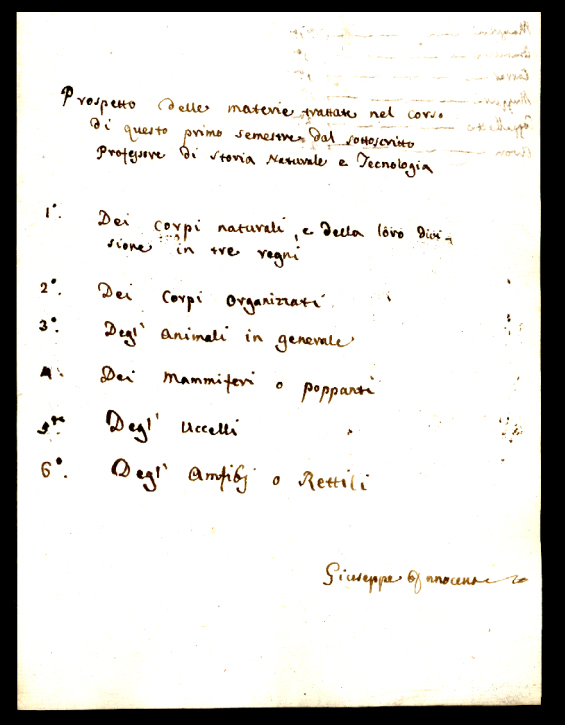 Prospetto delle materie trattate nel corso
di questo primo semestre dal sottoscritto
Professore di Storia Naturale e Tecnologia
1°. Dei corpi naturali, e della loro divi-
sione in tre regni
2°. Dei Corpi organizzati
3°. Degl' animali in generale
4°. Dei Mammiferi o poppanti
5to Degl' Uccelli
6°. Degl' Amfibj o Rettili
Giuseppe